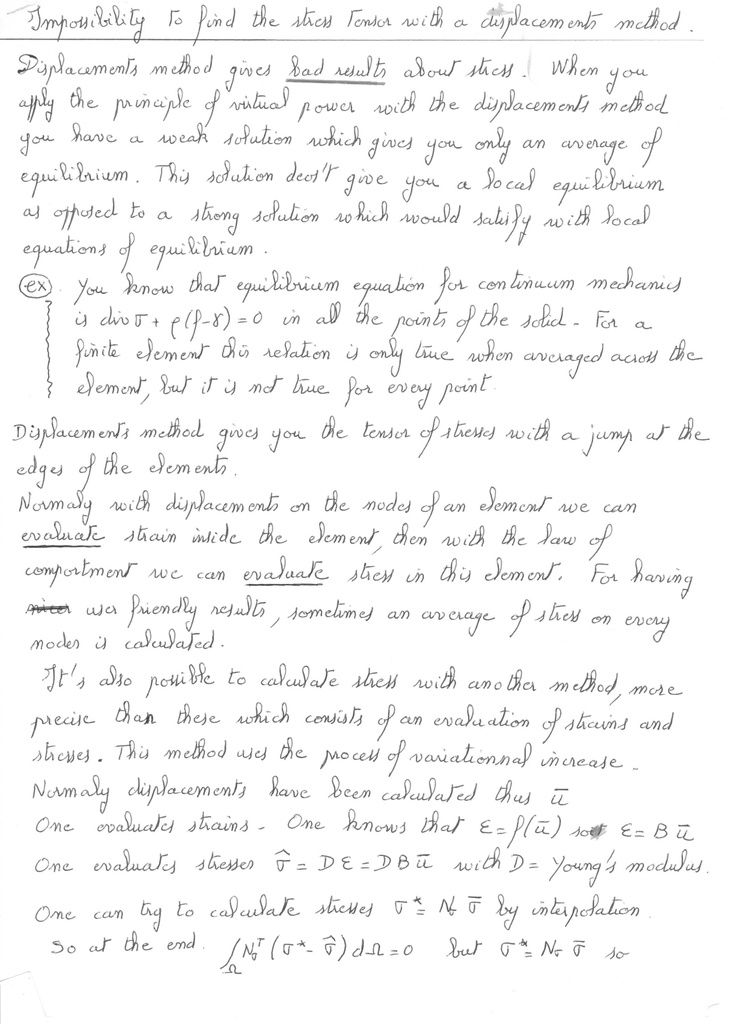 Impossibility to find the stress tensor with a displacements method.
Displacements method gives bad results about stress. When you
apply the principle of virtual power with the displacements method
you have a weak solution which gives you only an average of
equilibrium. This solution deos't give you a local equilibrium
as opposed to a strong solution which would satisfy with local
equations of equilibrium.
ex You know that equilibrium equation for continuum mechanics
is div σ + ρ(f-γ) = 0 in all the points of the solid - For a
finite element this relation is only true when averaged across the
element, but it is not true for every point.
Displacements method gives you the tensor of stresses with a jump at the
edges of the elements.
Normaly with displacements on the nodes of an element we can
evaluate strain inside the element, then with the law of
comportment we can evaluate stress in this element. For having
user friendly results, sometimes an average of stress on every
nodes is calculated.
It's also possible to calculate stress with another method, more
precise than these which consists of an evaluation of strains and
stresses. This method uses the process of variationnal increase -
Normaly displacements have been calculated thus ū
One evaluates strains - One knows that ε = f(ū) so ε = B ū
One evaluates stresses σ̂ = D ε = D B ū with D = Young's modulus.
One can try to calculate stresses σ* = Nσ σ̄ by interpolation
So at the end. ∫Ω Nσᵀ (σ* - σ̂) dΩ = 0 but σ* = Nσ σ̄ so